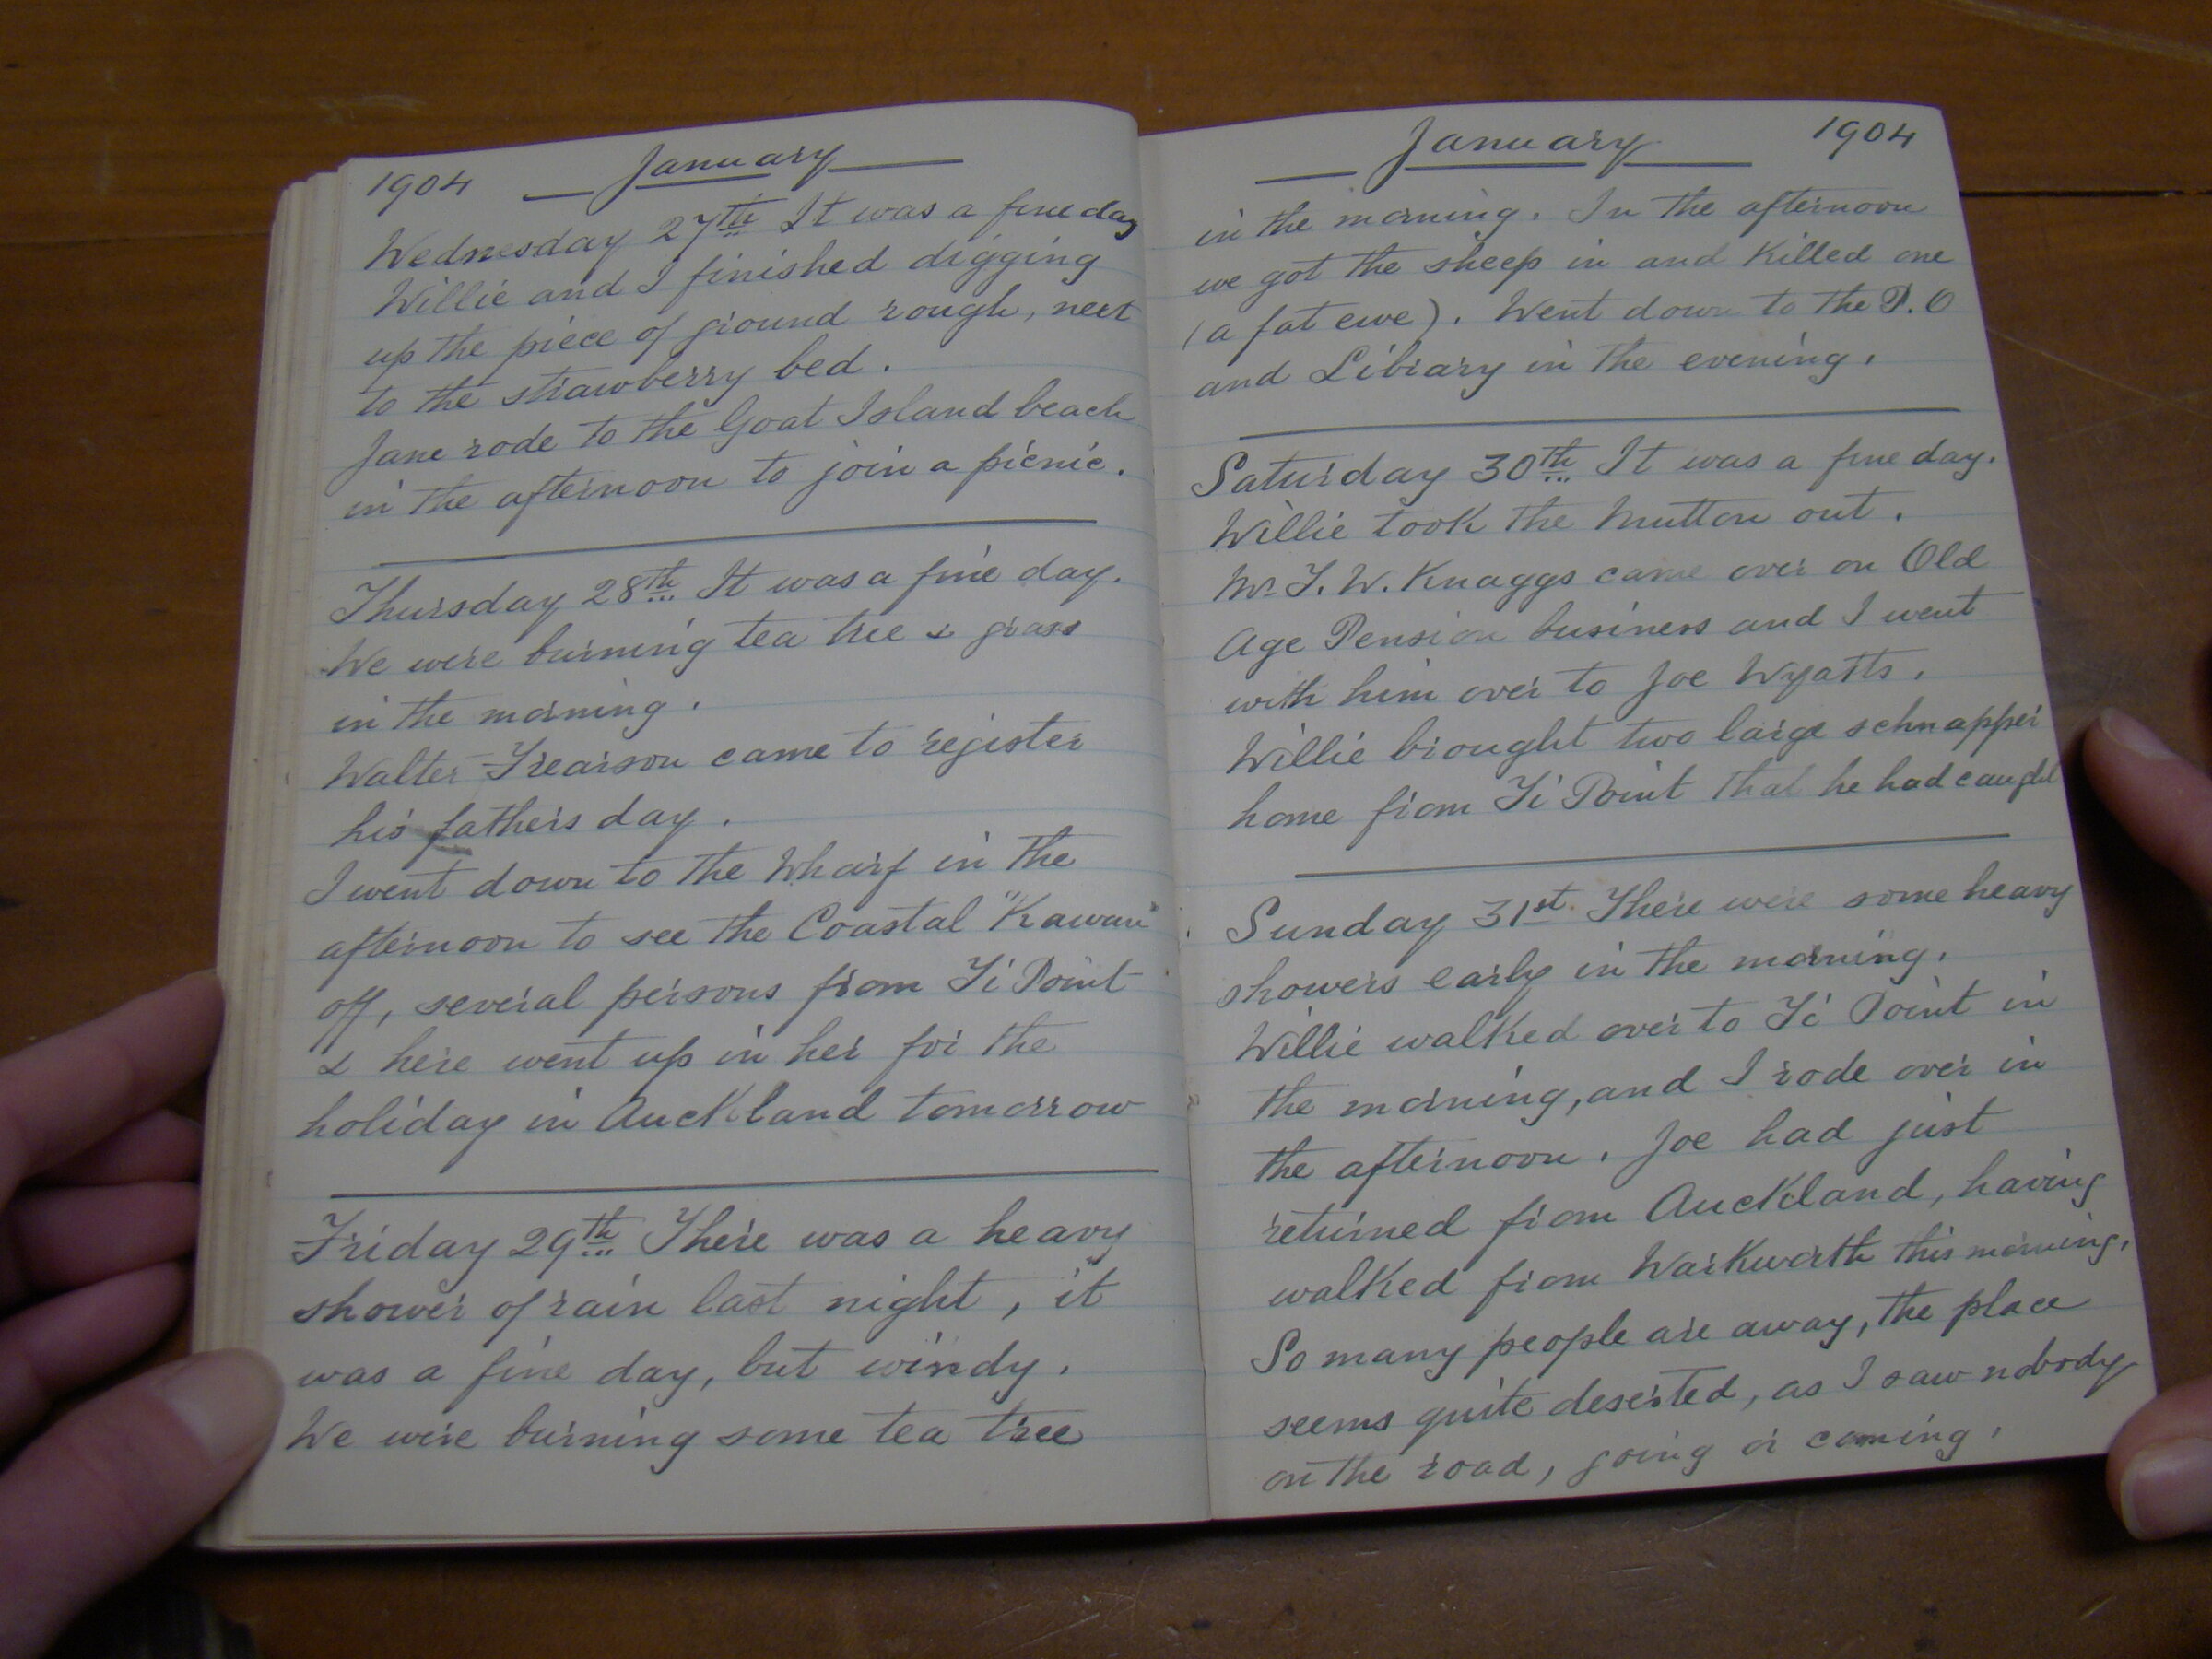 1904 January
Wednesday 27th It was a fine day
Willie and I finished digging
up the piece of ground rough, next
to the strawberry bed.
Jane rode to the Goat Island beach
in the afternoon to join a picnic.
Thursday 28th It was a fine day.
We were burning tea tree & grass
in the morning.
Walter Frearson came to register
his fathers day.
I went down to the Wharf in the
afternoon to see the Coastal "Kawau"
off, several persons from Ti Point
& here went up in her for the
holiday in Auckland tomorrow
Friday 29th There was a heavy
shower of rain last night, it
was a fine day, but windy.
We were burning some tea tree
January 1904
in the morning. In the afternoon
we got the sheep in and killed one
(a fat ewe). Went down to the P.O
and Library in the evening.
Saturday 30th It was a fine day.
Willie took the mutton out.
Mr T. W. Knaggs came over on Old
Age Pension business and I went
with him over to Joe Wyatts.
Willie brought two large schnapper
home from Ti Point that he had caught
Sunday 31st. There were some heavy
showers early in the morning.
Willie walked over to Ti Point in
the morning, and I rode over in
the afternoon. Joe had just
returned from Auckland, having
walked from Warkworth this morning.
So many people are away, the place
seems quite deserted, as I saw nobody
on the road, going or coming.